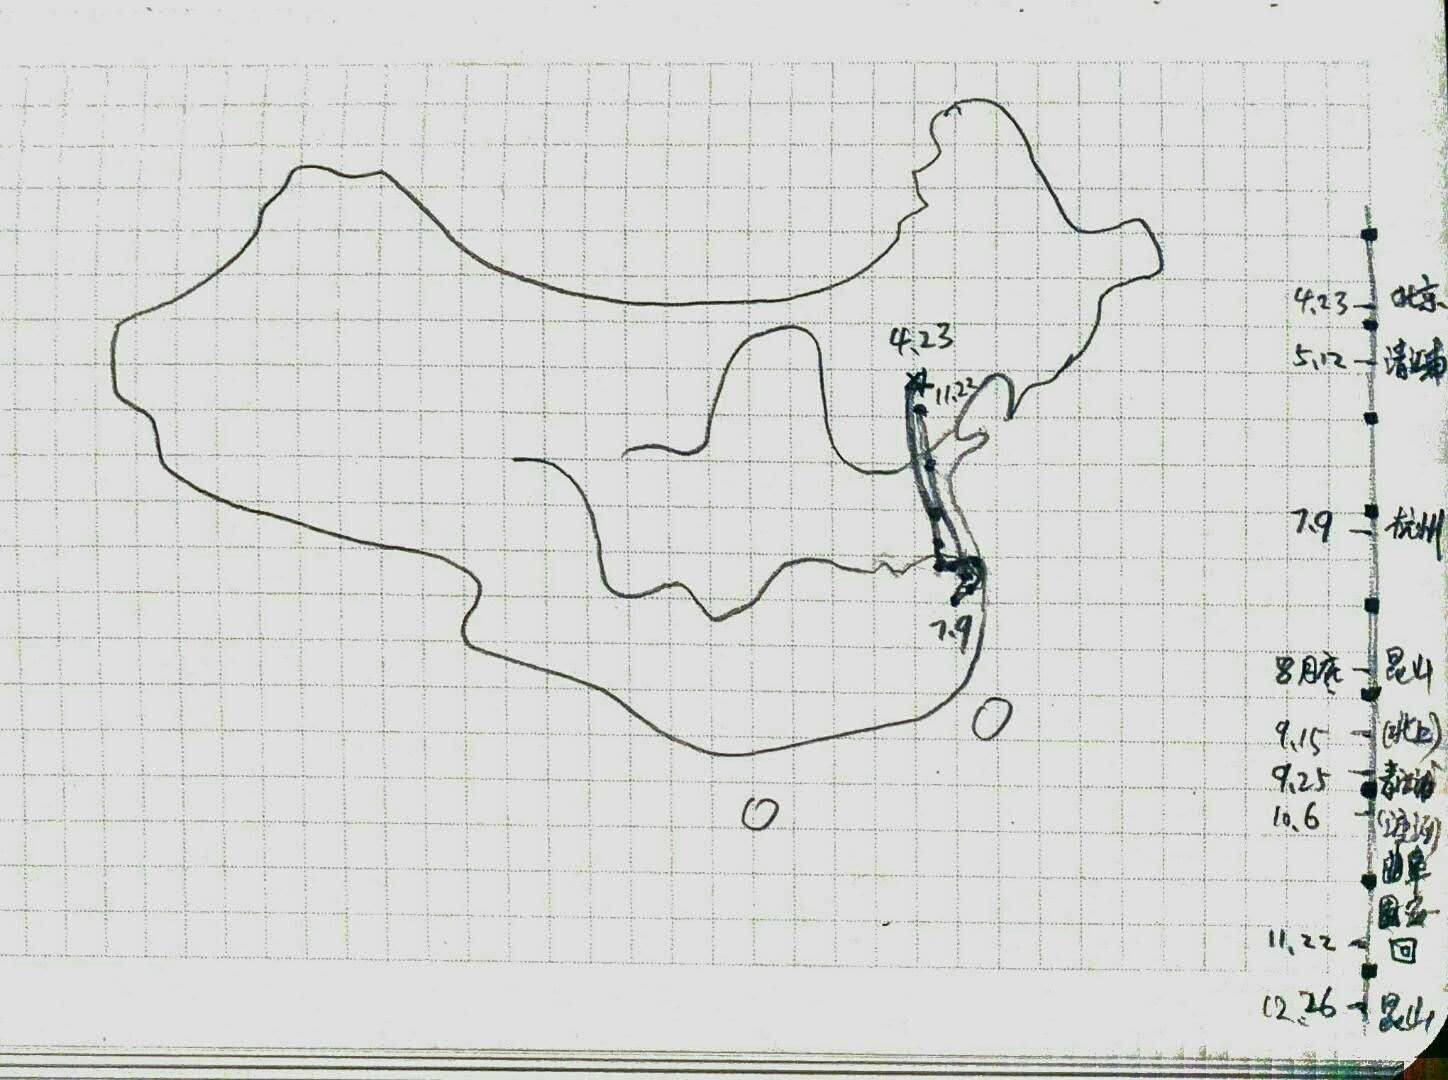 4.23
11.22
7.9
4.23 北京
5.12 清江浦
7.9 杭州
8月底 昆山
9.15 (北上)
9.25 清江浦
10.6
曲阜
固安
11.22 回
12.26 昆山